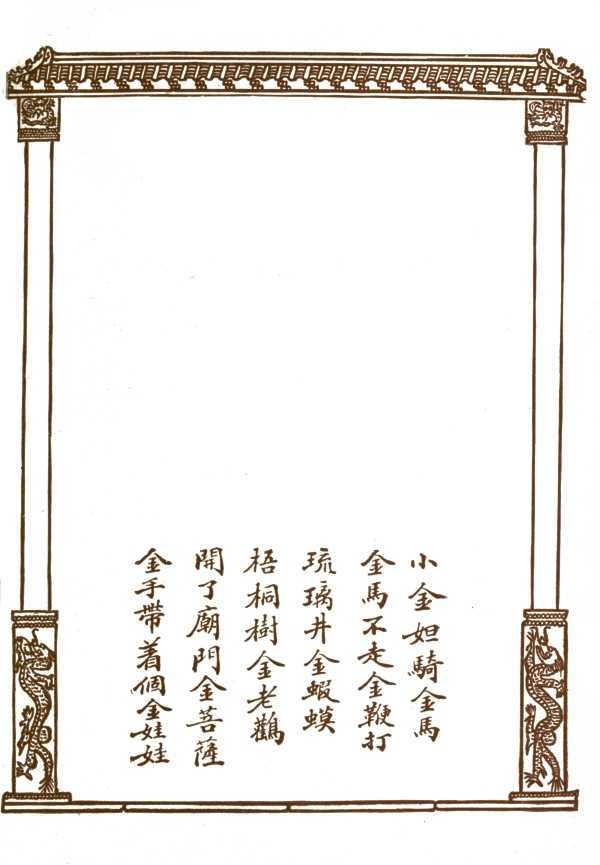 小金妲騎金馬
金馬不走金鞭打
琉璃井金蝦蟆
梧桐樹金老鸛
開了廟門金菩薩
金手帶着個金娃娃